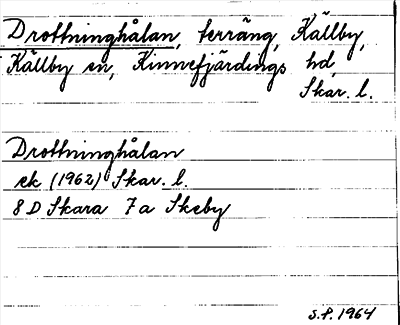 Drottninghålan, terräng, Källby,
Källby sn, Kinnefjärdings hd,
Skar. l.
Drottninghålan
ek (1962) Skar. l.
8 D Skara 7 a Skeby
S.P. 1964